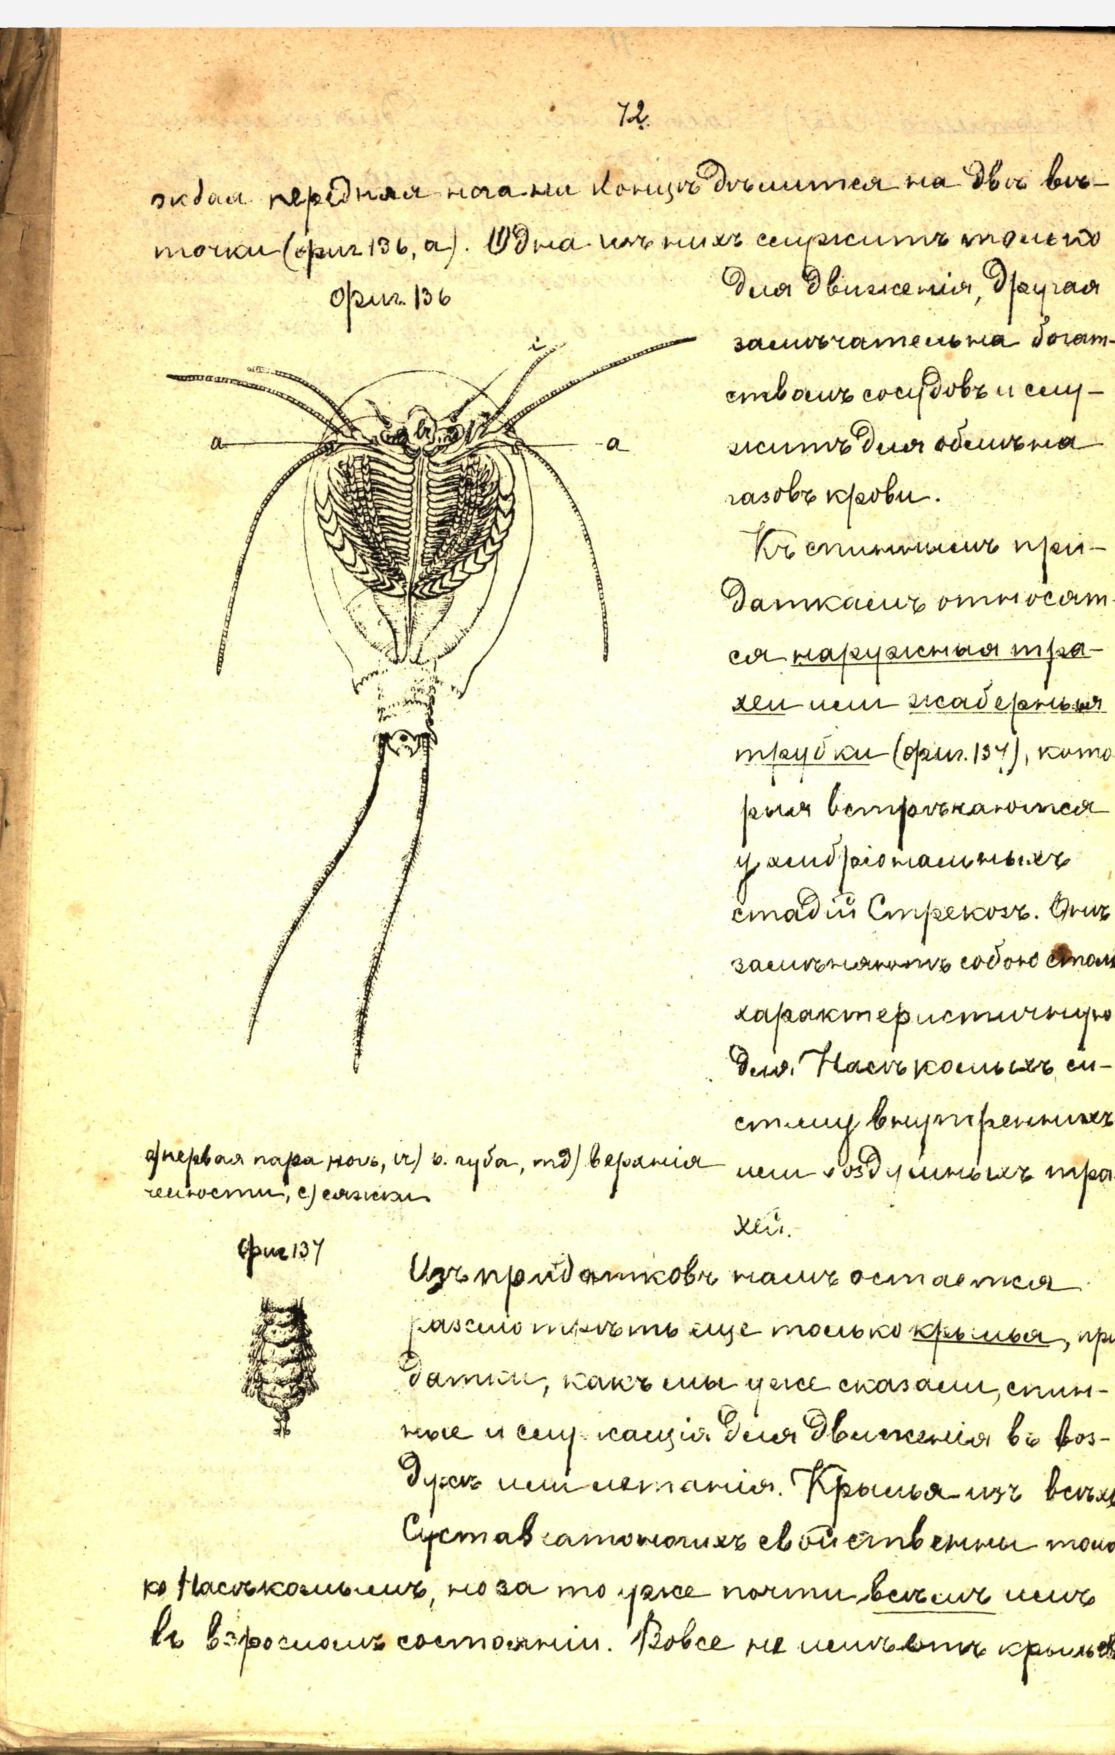 72.
ждая передняя нога на концѣ дѣлится на двѣ вѣ-
точки (фиг. 136, а). Одна изъ нихъ служитъ только
фиг. 136
для движенія, другая
замѣчательна богат-
ствомъ сосудовъ и слу-
житъ для обмѣна
газовъ крови.
i
a
a
Къ спиннымъ при-
даткамъ относят-
ся наружныя тра-
хеи или жаберныя
трубки (фиг. 137), кото
рыя встрѣчаются
у эмбріональныхъ
стадій Стрекозъ. Онѣ
замѣняютъ собою столь
характеристичную
для Насѣкомыхъ си-
стему внутреннихъ
или воздушныхъ тра
хей.
а) первая пара ногъ, в. губа, md) верхнія
челюсти, с) сяжки
фиг 137
Изъ придатковъ намъ остается
разсмотрѣть еще только крылья, при
датки, какъ мы уже сказали, спин-
ные и служащіе для движенія въ воз-
духѣ или летанія. Крылья изъ всѣхъ
Суставчатоногихъ свойственны толь
ко Насѣкомымъ, но за то уже почти всѣмъ имъ
въ взросломъ состояніи. Вовсе не имѣютъ крыльевъ